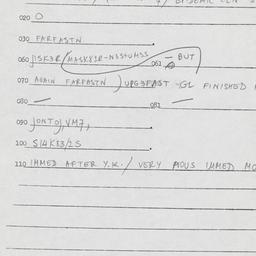 020 O
030 FARFASTN
060 JISK3R/MASK81R-N3StUMSS 061 - BUT
070 AGAIN FARFASTN ) UPG3FAST -GL FINISHED
080 — 081 —
090 JONTOJ, VM7,
100 S14K83/2S
110 IMMED AFTER Y.K. / VERY PIOUS IMMED MO